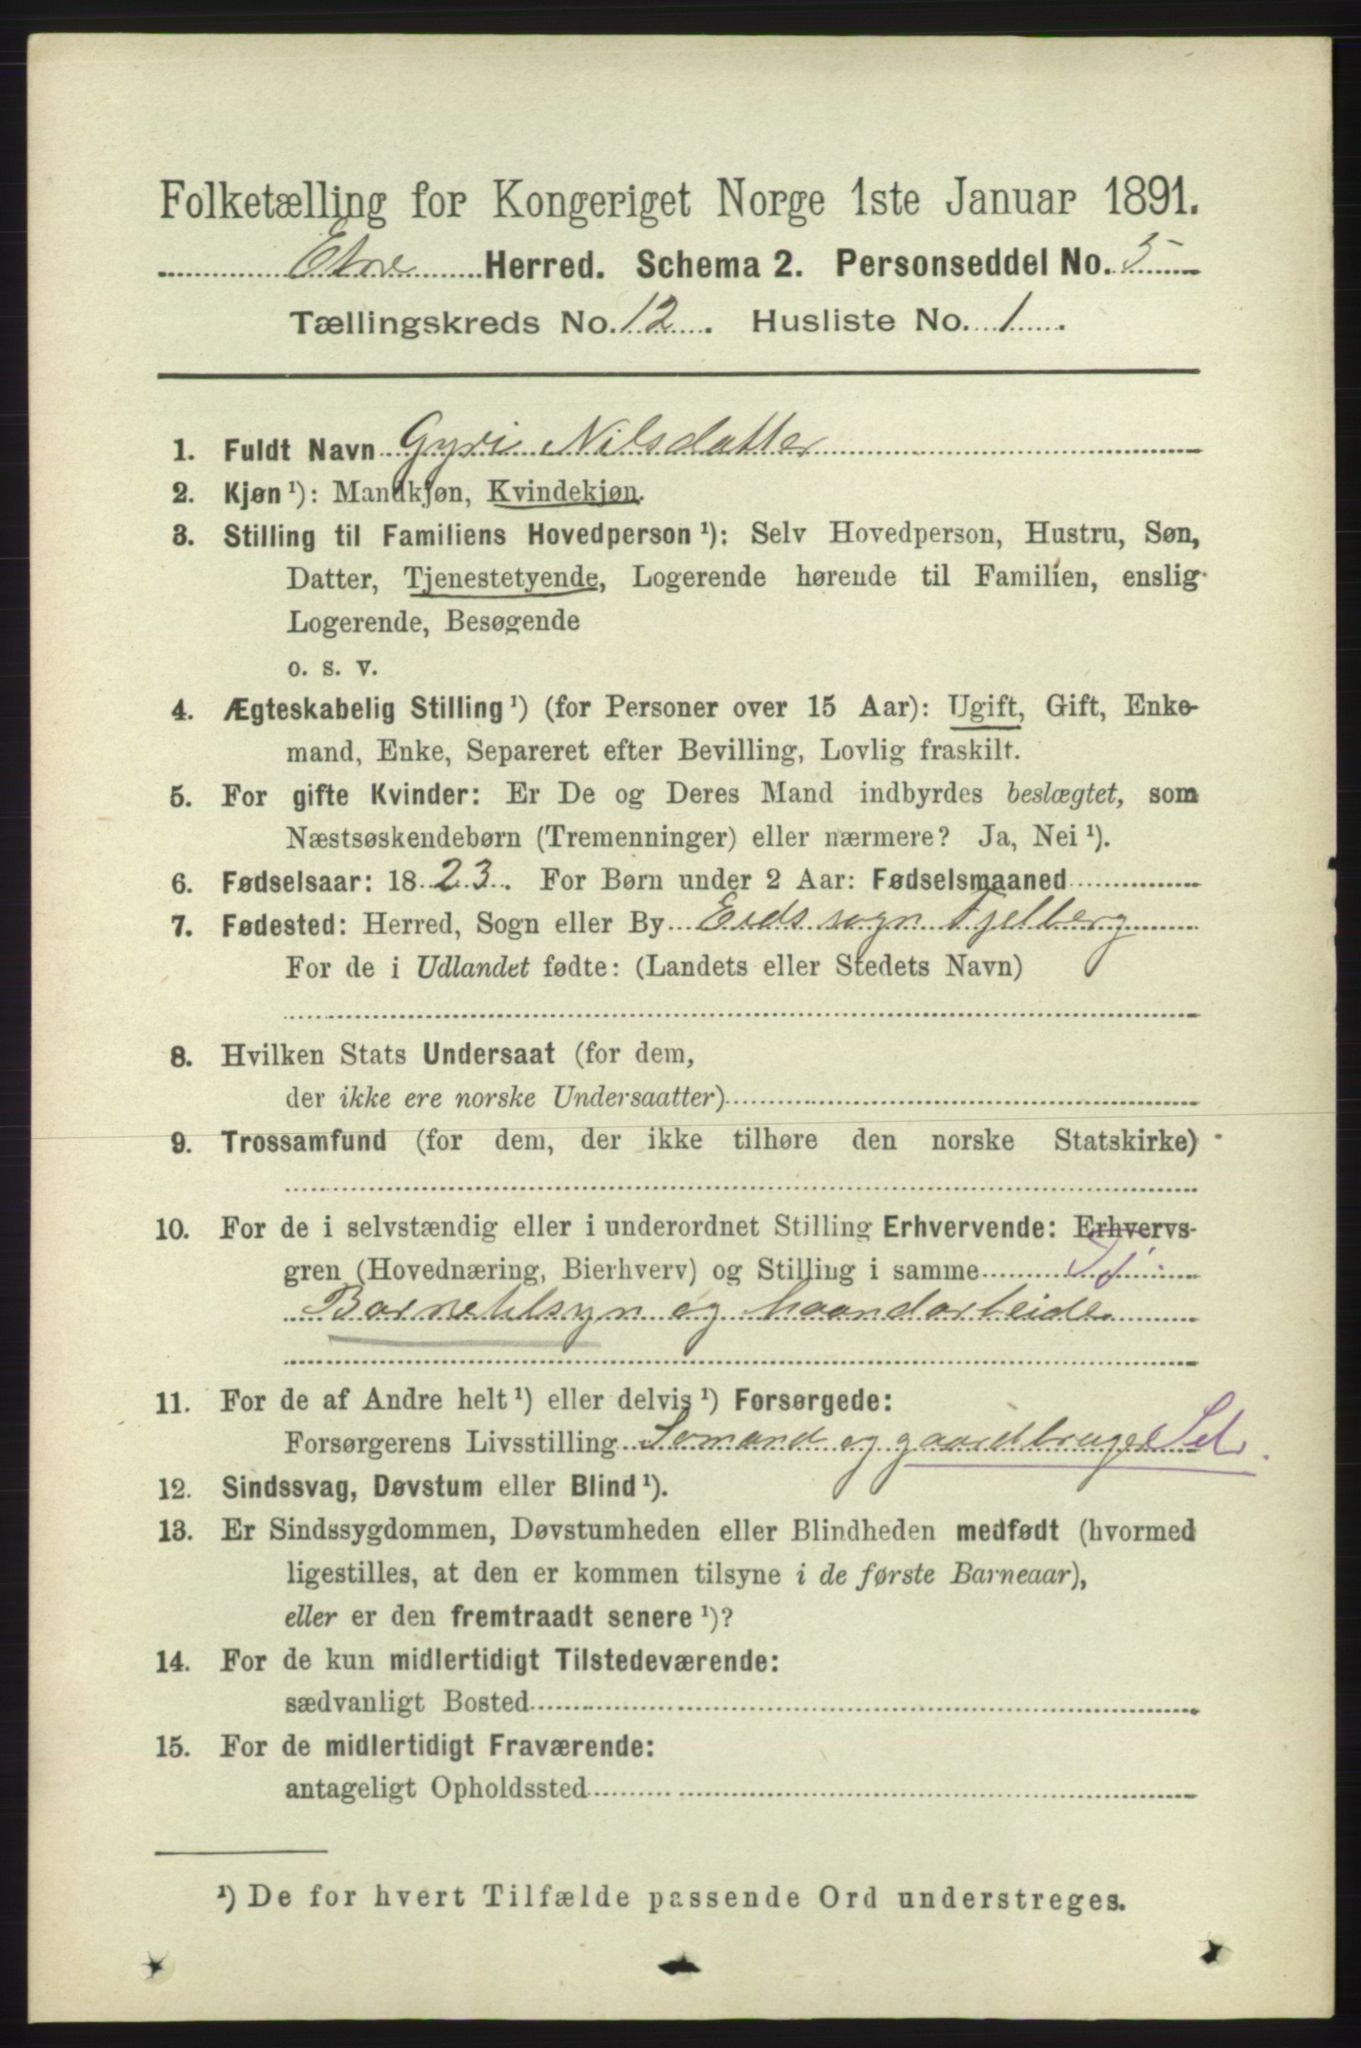 Folketælling for Kongeriget Norge 1ste Januar 1891.
Etne Herred. Schema 2. Personseddel No. 5
Tællingskreds No. 12. Husliste No. 1.
1. Fuldt Navn Gyri Nilsdatter
2. Kjøn¹): Mandkjøn, Kvindekjøn.
3. Stilling til Familiens Hovedperson¹): Selv Hovedperson, Hustru, Søn,
Datter, Tjenestetyende, Logerende hørende til Familien, enslig
Logerende, Besøgende
o. s. v.
4. Ægteskabelig Stilling¹) (for Personer over 15 Aar): Ugift, Gift, Enke-
mand, Enke, Separeret efter Bevilling, Lovlig fraskilt.
5. For gifte Kvinder: Er De og Deres Mand indbyrdes beslægtet, som
Næstsøskendebørn (Tremenninger) eller nærmere? Ja, Nei¹).
6. Fødselsaar: 1823. For Børn under 2 Aar: Fødselsmaaned
7. Fødested: Herred, Sogn eller By Eids sogn Fjelberg
For de i Udlandet fødte: (Landets eller Stedets Navn)
8. Hvilken Stats Undersaat (for dem,
der ikke ere norske Undersaatter)
9. Trossamfund (for dem, der ikke tilhøre den norske Statskirke)
10. For de i selvstændig eller i underordnet Stilling Erhvervende: Erhvervs-
gren (Hovednæring, Bierhverv) og Stilling i samme Tj.
Barnetilsyn og haandarbeide
11. For de af Andre helt¹) eller delvis¹) Forsørgede:
Forsørgerens Livsstilling Sømand og gaardbruger Sel.
12. Sindssvag, Døvstum eller Blind¹).
13. Er Sindssygdommen, Døvstumheden eller Blindheden medfødt (hvormed
ligestilles, at den er kommen tilsyne i de første Barneaar),
eller er den fremtraadt senere¹)?
14. For de kun midlertidigt Tilstedeværende:
sædvanligt Bosted
15. For de midlertidigt Fraværende:
antageligt Opholdssted
¹) De for hvert Tilfælde passende Ord understreges.